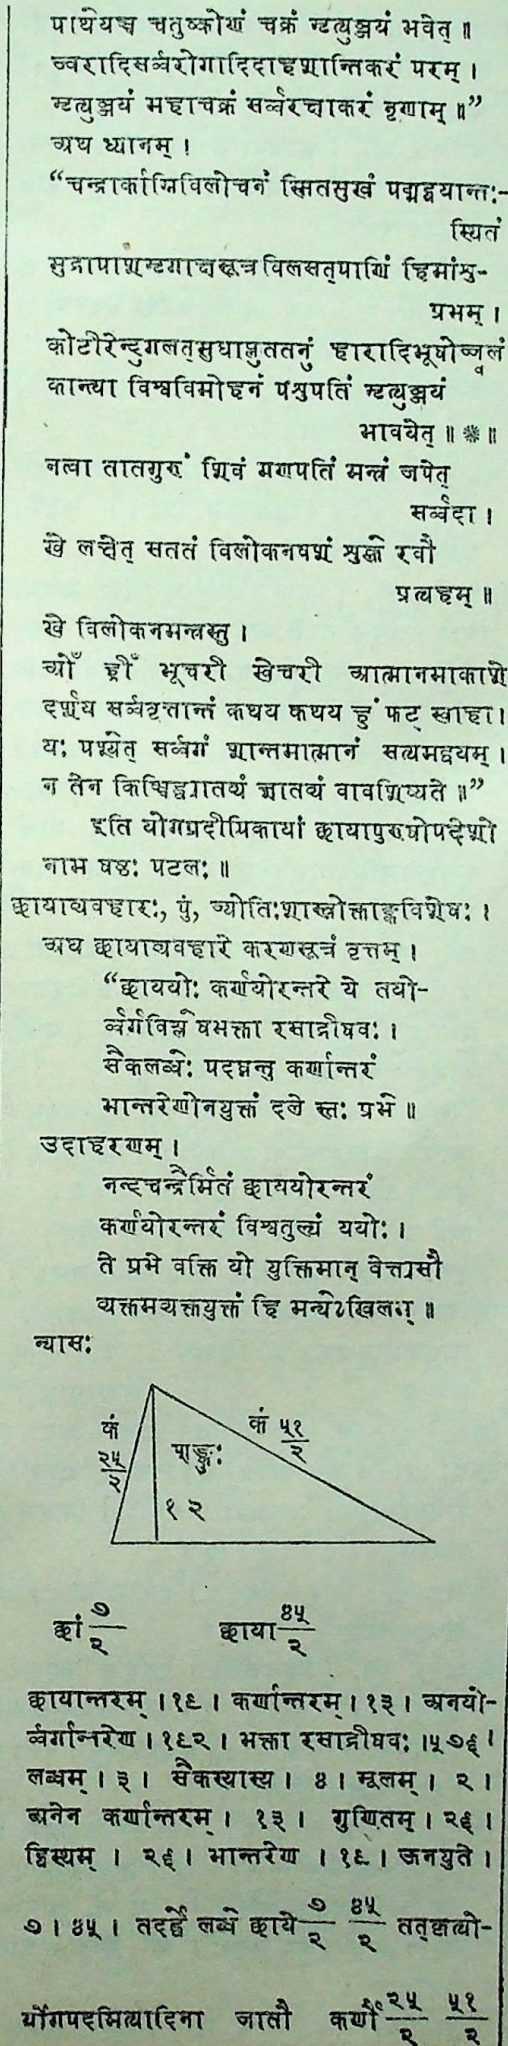 पार्थयेच्च चतुष्कोणं चक्रं मृत्युञ्जयं भवेत् ॥
ज्वरादिसर्व्वरोगादिदाहशान्तिकरं परम् ।
मृत्युञ्जयं महाचक्रं सर्व्वरक्षाकरं नृणाम् ॥”
अथ ध्यानम् ।
“चन्द्रार्काग्निविलोचनं स्मितमुखं पद्मद्वयान्तः-
स्थितं
मुद्रापाशमृगाक्षसूत्रविलसत्पाणिं हिमांशु-
प्रभम् ।
कोटीरेन्दुगलत्सुधाप्लुततनुं हारादिभूषोज्ज्वलं
कान्त्या विश्वविमोहनं पशुपतिं मृत्युञ्जयं
भावयेत् ॥ * ॥
नत्वा तातगुरुं शिवं गणपतिं मन्त्रं जपेत्
सर्व्वदा ।
खे लक्षेत् सततं विलोकनवशं शुक्ले रवौ
प्रत्यहम् ॥
खे विलोकनमन्त्रस्तु ।
ओँ ह्रीँ भूचरी खेचरी आत्मानमाकाशे
दर्शय सर्व्ववृत्तान्तं कथय कथय हुं फट् स्वाहा ।
यः पश्येत् सर्व्वगं शान्तमात्मानं सत्यमद्वयम् ।
न तेन किञ्चिद्ध्यातव्यं ज्ञातव्यं वावशिष्यते ॥”
इति योगप्रदीपिकायां छायापुरुषोपदेशो
नाम षष्ठः पटलः ॥
छायाव्यवहारः, पुं, ज्योतिःशास्त्रोक्ताङ्कविशेषः ।
अथ छायाव्यवहारे करणसूत्रं वृत्तम् ।
“छाययोः कर्णयोरन्तरे ये तयो-
र्व्वर्गविश्लेषभक्ता रसाद्रीषवः ।
सैकलब्धेः पदघ्नन्तु कर्णान्तरं
भान्तरेणोनयुक्तं दले स्तः प्रभे ॥
उदाहरणम् ।
नन्दचन्द्रैर्मितं छाययोरन्तरं
कर्णयोरन्तरं विश्वतुल्यं ययोः ।
ते प्रभे वक्ति यो युक्तिमान् वेत्त्यसौ
व्यक्तमव्यक्तयुक्तं हि मन्येऽखिलम् ॥
न्यासः
कं २५/२ शङ्कुः १२ कं ५१/२
छां ७/२ छाया ४५/२
छायान्तरम् । १९ । कर्णान्तरम् । १३ । अनयो-
र्व्वर्गान्तरेण । १९२ । भक्ता रसाद्रीषवः । ५७६ ।
लब्धम् । ३ । सैकस्यास्य । ४ । मूलम् । २ ।
अनेन कर्णान्तरम् । १३ । गुणितम् । २६ ।
द्विस्थम् । २६ । भान्तरेण । १९ । ऊनयुते ।
७ । ४५ । तदर्द्धे लब्धे छाये ७/२ ४५/२ तत्कृत्यो-
र्योगपदमित्यादिना जातौ कर्णौ २५/२ ५१/२